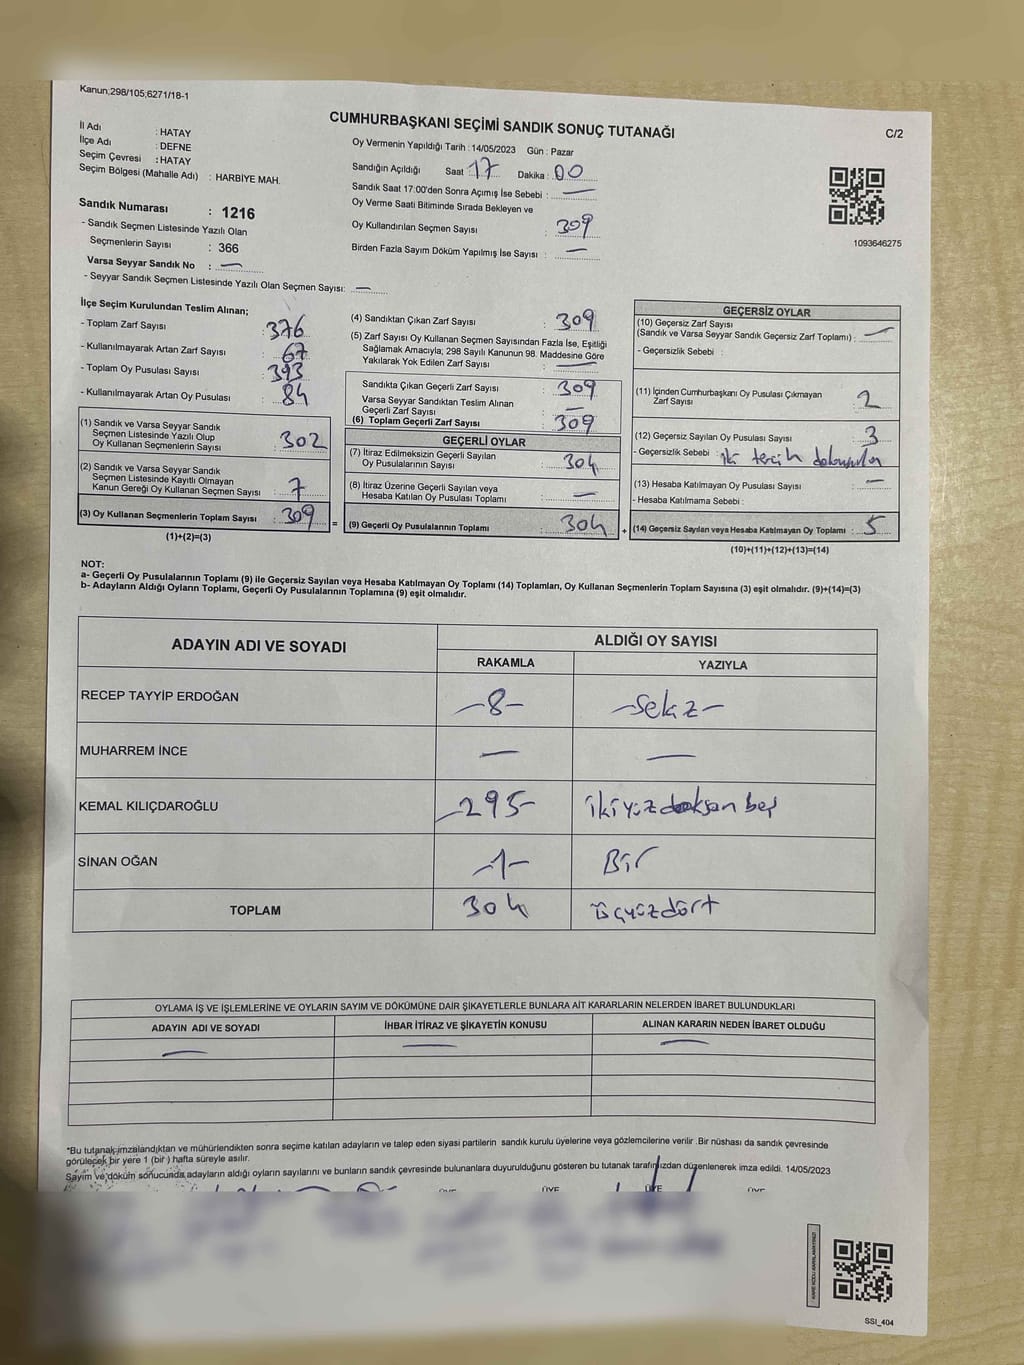 Kanun;298/105;6271/18-1
CUMHURBAŞKANI SEÇİMİ SANDIK SONUÇ TUTANAĞI
C/2
İl Adı : HATAY
İlçe Adı : DEFNE
Seçim Çevresi : HATAY
Seçim Bölgesi (Mahalle Adı) : HARBİYE MAH.
Sandık Numarası : 1216
- Sandık Seçmen Listesinde Yazılı Olan
Seçmenlerin Sayısı : 366
Varsa Seyyar Sandık No : —
- Seyyar Sandık Seçmen Listesinde Yazılı Olan Seçmen Sayısı: —
Oy Vermenin Yapıldığı Tarih : 14/05/2023 Gün : Pazar
Sandığın Açıldığı Saat 17 Dakika : 00
Sandık Saat 17:00'den Sonra Açımış İse Sebebi : —
Oy Verme Saati Bitiminde Sırada Bekleyen ve
Oy Kullandırılan Seçmen Sayısı : 309
Birden Fazla Sayım Döküm Yapılmış İse Sayısı : —
1093646275
İlçe Seçim Kurulundan Teslim Alınan;
- Toplam Zarf Sayısı : 376
- Kullanılmayarak Artan Zarf Sayısı : 67
- Toplam Oy Pusulası Sayısı : 393
- Kullanılmayarak Artan Oy Pusulası : 84
(1) Sandık ve Varsa Seyyar Sandık
Seçmen Listesinde Yazılı Olup
Oy Kullanan Seçmenlerin Sayısı : 302
(2) Sandık ve Varsa Seyyar Sandık
Seçmen Listesinde Kayıtlı Olmayan
Kanun Gereği Oy Kullanan Seçmen Sayısı : 7
(3) Oy Kullanan Seçmenlerin Toplam Sayısı : 309
(1)+(2)=(3)
(4) Sandıktan Çıkan Zarf Sayısı : 309
(5) Zarf Sayısı Oy Kullanan Seçmen Sayısından Fazla İse, Eşitliği
Sağlamak Amacıyla; 298 Sayılı Kanunun 98. Maddesine Göre
Yakılarak Yok Edilen Zarf Sayısı : —
Sandıkta Çıkan Geçerli Zarf Sayısı : 309
Varsa Seyyar Sandıktan Teslim Alınan
Geçerli Zarf Sayısı : —
(6) Toplam Geçerli Zarf Sayısı : 309
GEÇERLİ OYLAR
(7) İtiraz Edilmeksizin Geçerli Sayılan
Oy Pusulalarının Sayısı : 304
(8) İtiraz Üzerine Geçerli Sayılan veya
Hesaba Katılan Oy Pusulası Toplamı : —
= (9) Geçerli Oy Pusulalarının Toplamı : 304 +
GEÇERSİZ OYLAR
(10) Geçersiz Zarf Sayısı
(Sandık ve Varsa Seyyar Sandık Geçersiz Zarf Toplamı) : —
- Geçersizlik Sebebi :
(11) İçinden Cumhurbaşkanı Oy Pusulası Çıkmayan
Zarf Sayısı : 2
(12) Geçersiz Sayılan Oy Pusulası Sayısı : 3
- Geçersizlik Sebebi : iki tercih
(13) Hesaba Katılmayan Oy Pusulası Sayısı : —
- Hesaba Katılmama Sebebi :
(14) Geçersiz Sayılan veya Hesaba Katılmayan Oy Toplamı : 5
(10)+(11)+(12)+(13)=(14)
NOT:
a- Geçerli Oy Pusulalarının Toplamı (9) ile Geçersiz Sayılan veya Hesaba Katılmayan Oy Toplamı (14) Toplamları, Oy Kullanan Seçmenlerin Toplam Sayısına (3) eşit olmalıdır. (9)+(14)=(3)
b- Adayların Aldığı Oyların Toplamı, Geçerli Oy Pusulalarının Toplamına (9) eşit olmalıdır.
ADAYIN ADI VE SOYADI
ALDIĞI OY SAYISI
RAKAMLA YAZIYLA
RECEP TAYYİP ERDOĞAN -8- -Sekiz-
MUHARREM İNCE — —
KEMAL KILIÇDAROĞLU -295- ikiyüzdoksan beş
SİNAN OĞAN -1- Bir
TOPLAM 304 üçyüzdört
OYLAMA İŞ VE İŞLEMLERİNE VE OYLARIN SAYIM VE DÖKÜMÜNE DAİR ŞİKAYETLERLE BUNLARA AİT KARARLARIN NELERDEN İBARET BULUNDUKLARI
ADAYIN ADI VE SOYADI İHBAR İTİRAZ VE ŞİKAYETİN KONUSU ALINAN KARARIN NEDEN İBARET OLDUĞU
— — —
*Bu tutanak imzalandıktan ve mühürlendikten sonra seçime katılan adayların ve talep eden siyasi partilerin sandık kurulu üyelerine veya gözlemcilerine verilir .Bir nüshası da sandık çevresinde
görülecek bir yere 1 (bir ) hafta süreyle asılır.
Sayım ve döküm sonucunda adayların aldığı oyların sayılarını ve bunların sandık çevresinde bulunanlara duyurulduğunu gösteren bu tutanak tarafımızdan düzenlenerek imza edildi. 14/05/2023
ÜYE ÜYE ÜYE ÜYE
SSI_404